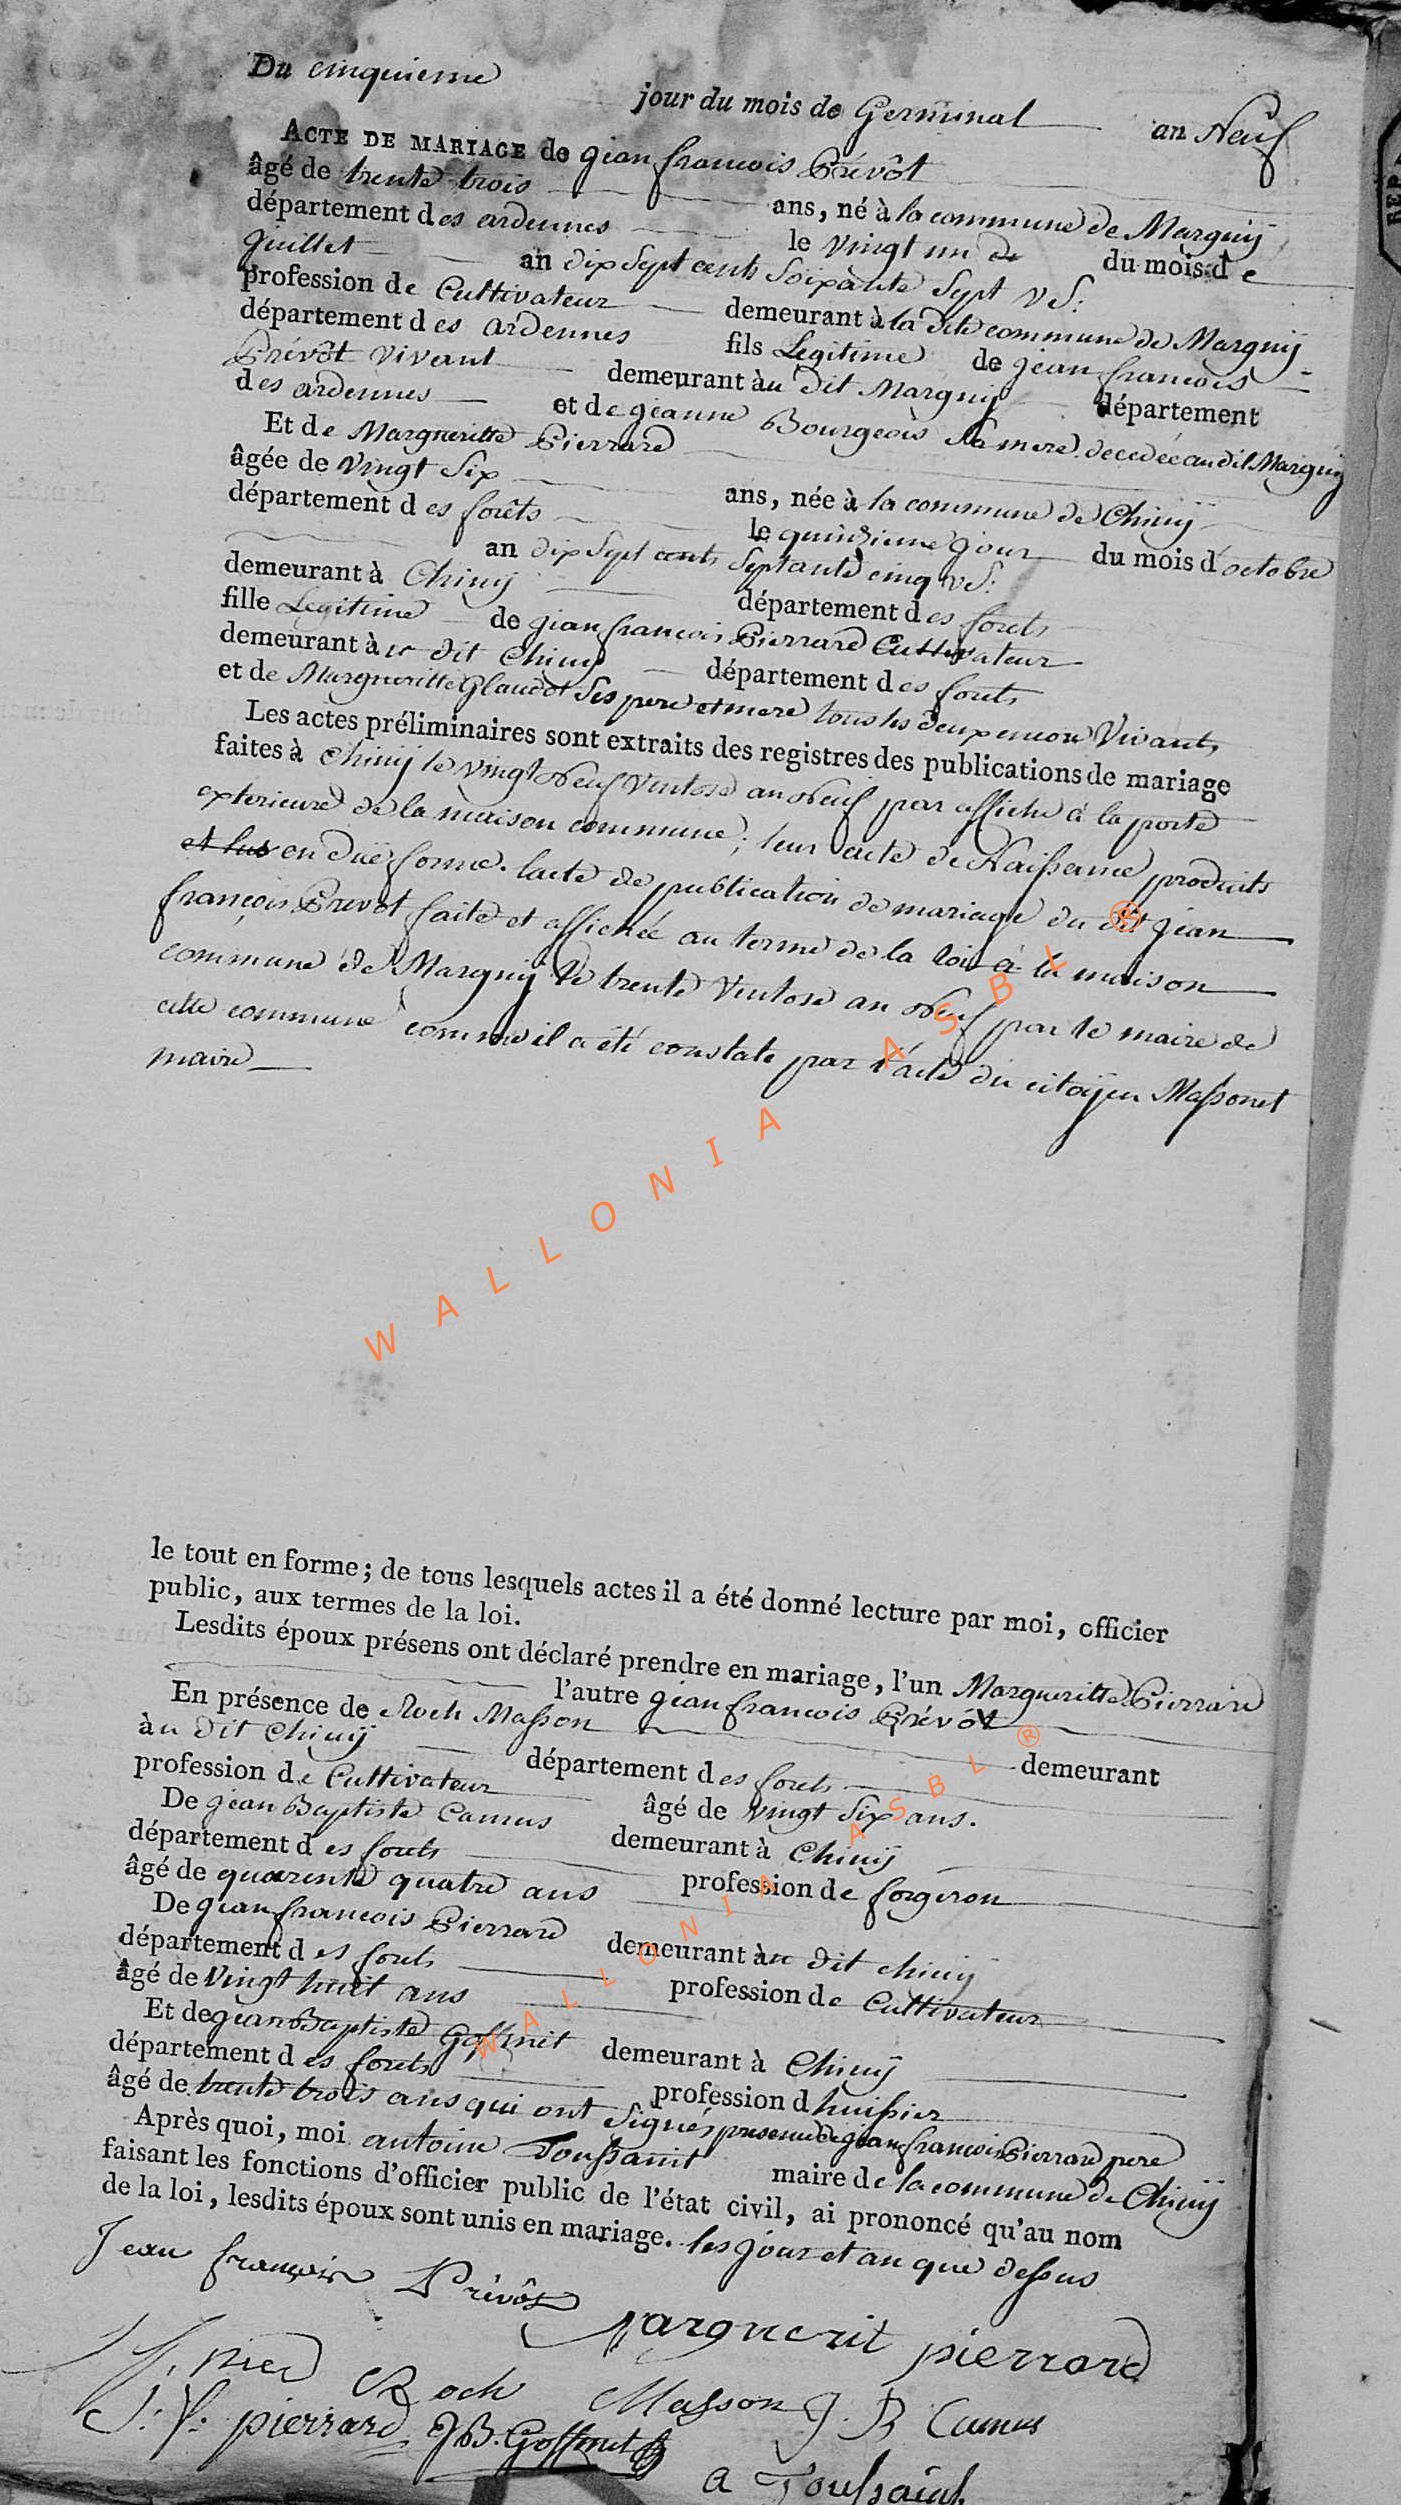 Du cinquieme jour du mois de Germinal an Neuf
ACTE DE MARIAGE de gean francois Prévôt
âgé de trente trois ans, né à la commune de Marguÿ
département des ardennes le vingt un de du mois de
Juillet an dix Sept cents Soixante Sept v S:
profession de Cultivateur demeurant à la dite commune de Marguÿ
département des ardennes fils Legitime de jean francois
Prévôt vivant demeurant au dit Marguÿ département
des ardennes et de geanne Bourgeois Sa mere decedée au dit Marguÿ
Et de Margueritte Pierrard
âgée de vingt Six ans, née à la commune de Chinÿ
département des forêts le quinzieme jour du mois d'octobre
an dix Sept cents Septante cinq v S:
demeurant à Chinÿ département des forets
fille Legitime de gean francois Pierrard Cultivateur
demeurant à u dit Chinÿ département des forets
et de Margueritte Glaudot Ses pere et mere tous les deux encore Vivants
Les actes préliminaires sont extraits des registres des publications de mariage
faites à Chinÿ le vingt Neuf Ventose an Neuf par affiche à la porte
exterieure de la maison commune; leur acte de Naissance produits
et lus en düe forme. lacte de publication de mariage du dit jean
françois Prevot faite et affichée au terme de la loi à la maison
commune de Marguÿ le trente Ventose an Neuf par le maire de
cette commune comme il a été constaté par l'acte du citoÿen Massonet
maire
le tout en forme; de tous lesquels actes il a été donné lecture par moi, officier
public, aux termes de la loi.
Lesdits époux présens ont déclaré prendre en mariage, l'un Margueritte Pierrard
l'autre gean francois Prévôt
En présence de Roch Masson demeurant
àu dit Chinÿ département des forets
profession de Cultivateur âgé de vingt Six ans.
De gean Baptiste Camus demeurant à Chinÿ
département des forets profession de forgeron
âgé de quarente quatre ans
De gean francois Pierrard demeurant àu dit chinÿ
département des forets profession de Cultivateur
âgé de Vingt huit ans
Et de gean Baptiste Goffinet demeurant à Chinÿ
département des forets profession d huissier
âgé de trente trois ans qui ont Signés presence de gean francois Pierrard pere
Après quoi, moi antoine Toussaint maire de la commune de Chinÿ
faisant les fonctions d'officier public de l'état civil, ai prononcé qu'au nom
de la loi, lesdits époux sont unis en mariage. les jour et an que dessus
Jean françois Prévôt
Marguerit pierrard
Roch Masson J. B Camus
J: f: pierrard JB. Goffinet
a Toussaint
WALLONIA ASBL ®
WALLONIA ASBL ®